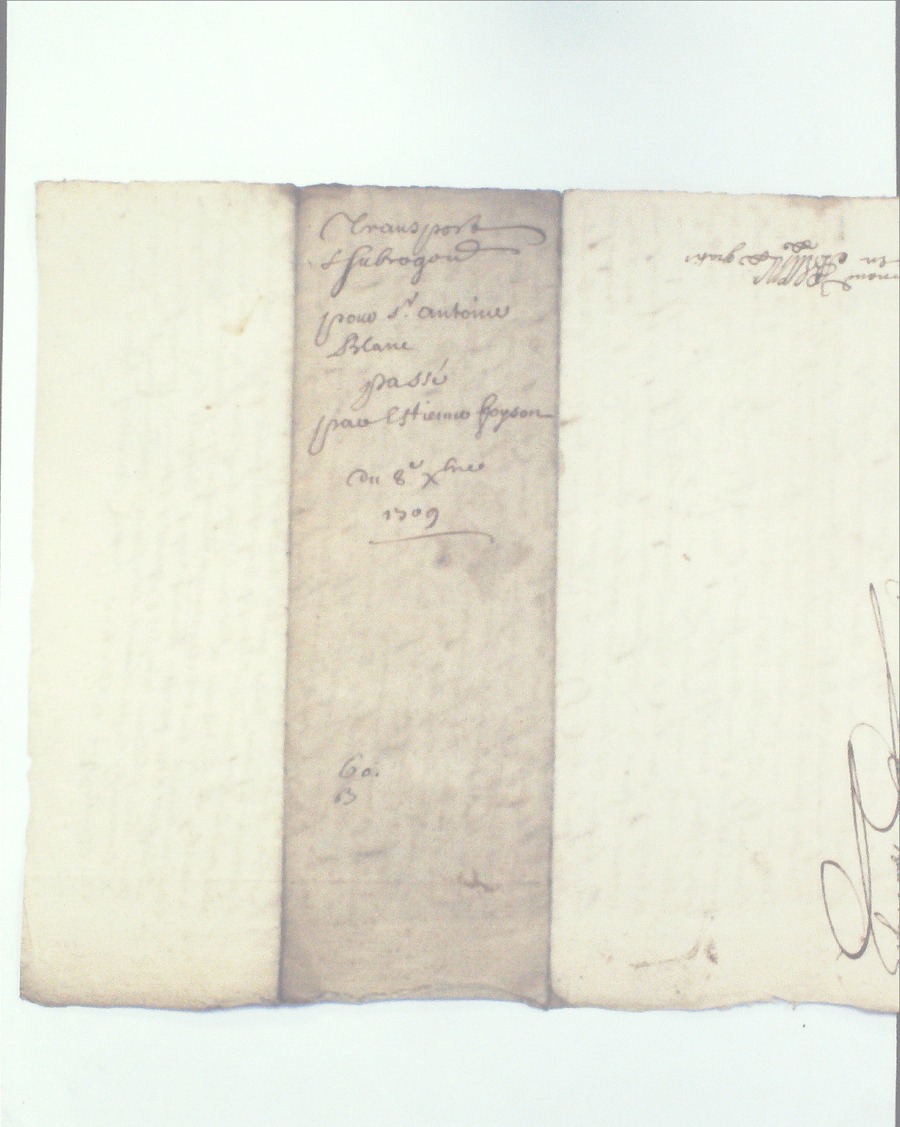 Transport
& Subrogaon
pour Sr. antoine
Blanc
passé
par Estienne Goyson
Du 8e xbre
1709
60.
B